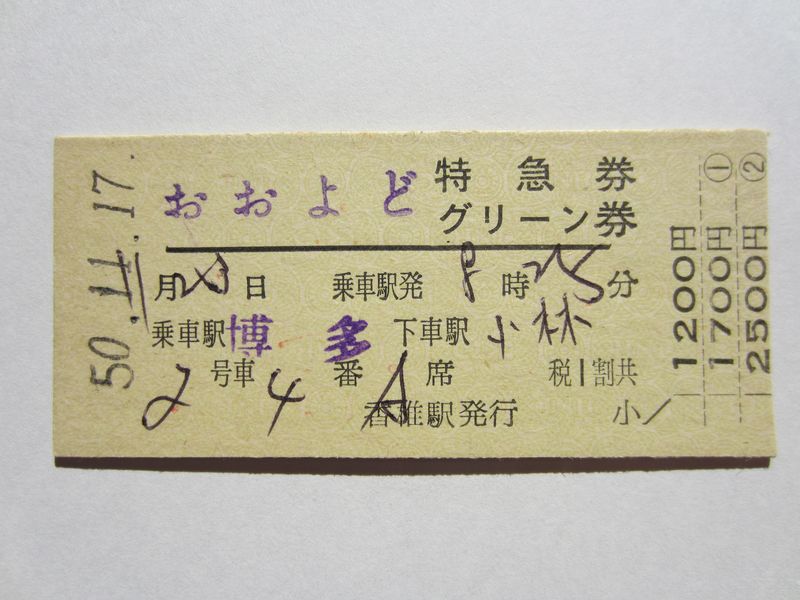 50.11.17.
おおよど
特急券
グリーン券
11月23日 乗車駅発8時25分
乗車駅博多 下車駅小林
2号車4番A席 税1割共
香椎駅発行 小
1200円
① 1700円
② 2500円